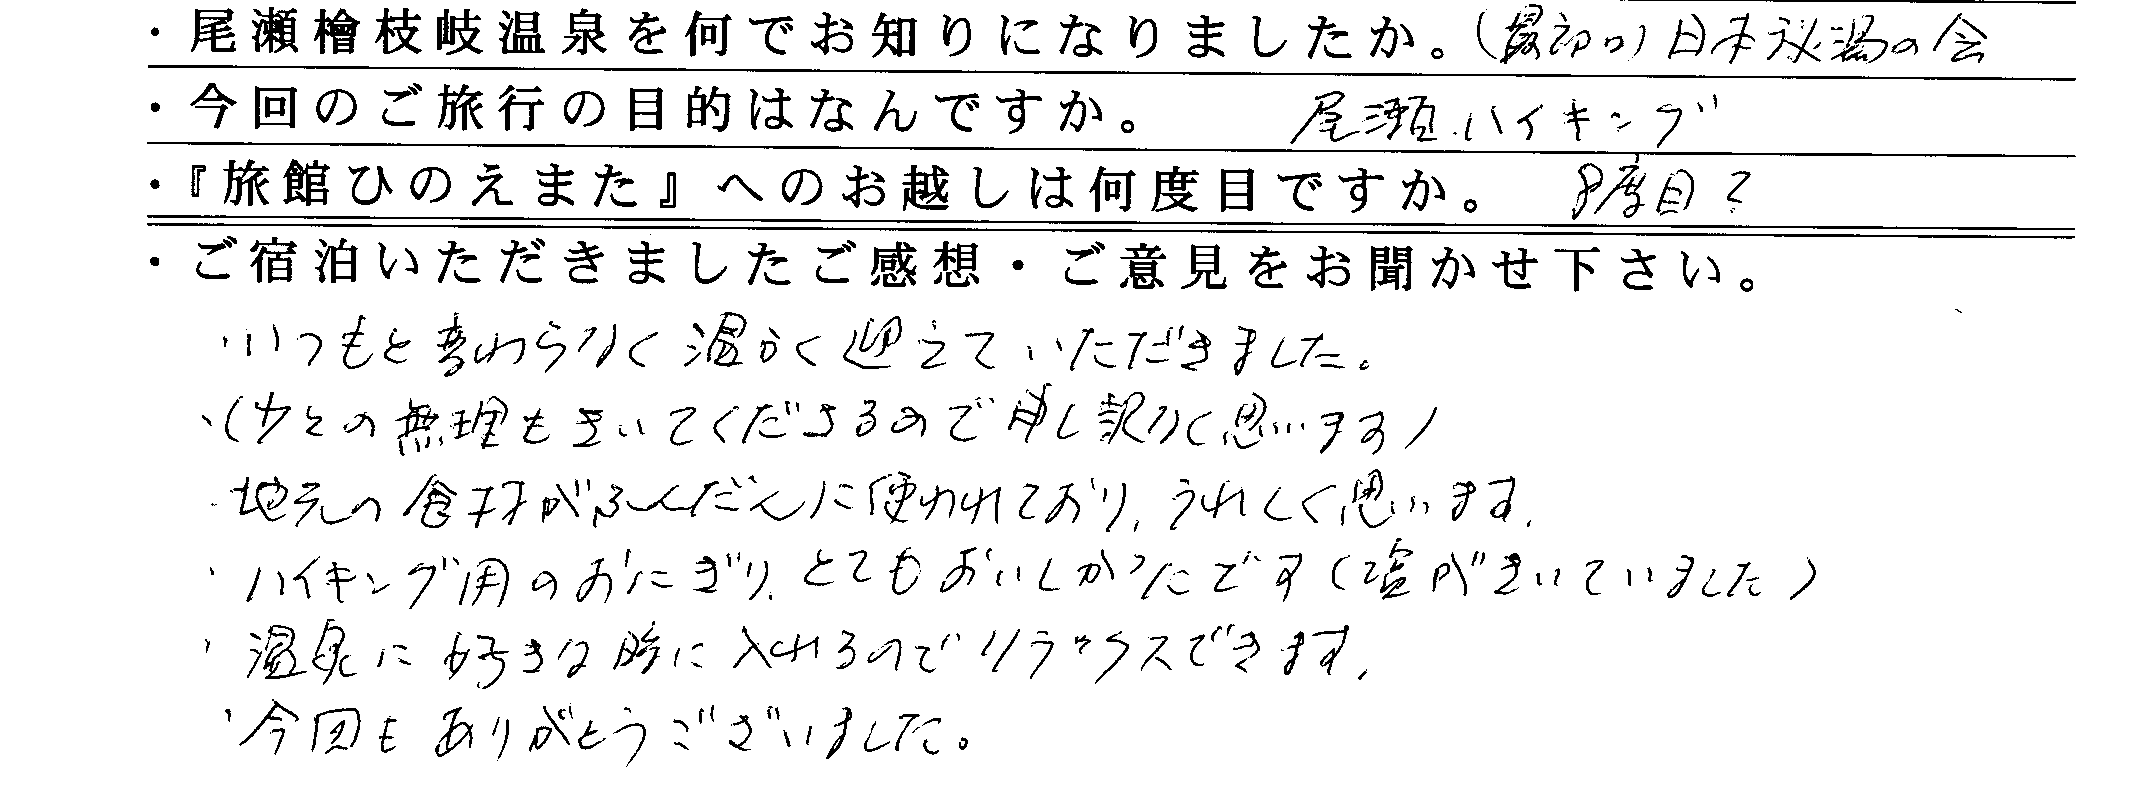 ・尾瀬檜枝岐温泉を何でお知りになりましたか。(最初の)日本秘湯の会
・今回のご旅行の目的はなんですか。 尾瀬ハイキング
・『旅館ひのえまた』へのお越しは何度目ですか。 8度目?
・ご宿泊いただきましたご感想・ご意見をお聞かせ下さい。
・いつもと変わらなく温かく迎えていただきました。
・(力との無理もきいてくださるので申し訳なく思います)
・地元の食材がふんだんに使われており、うれしく思います。
・ハイキング用のおにぎり、とてもおいしかったです(塩がきいていました)
・温泉に好きな時に入れるのでリラックスできます。
・今回もありがとうございました。